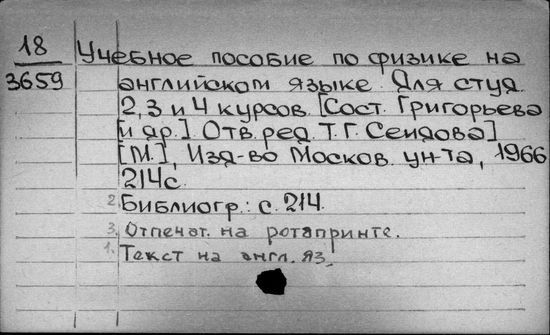 18 Учебное пособие по физике на
3659 английском языке. Для студ.
2, 3 и 4 курсов. [Сост. Григорьева
и др.] Отв. ред. Т.Г. Сеидова]
[М.], Изд-во Москов. ун-та, 1966
214 с.
2. Библиогр.: с. 214.
3. Отпечат. на ротапринте.
1. Текст на англ. яз.